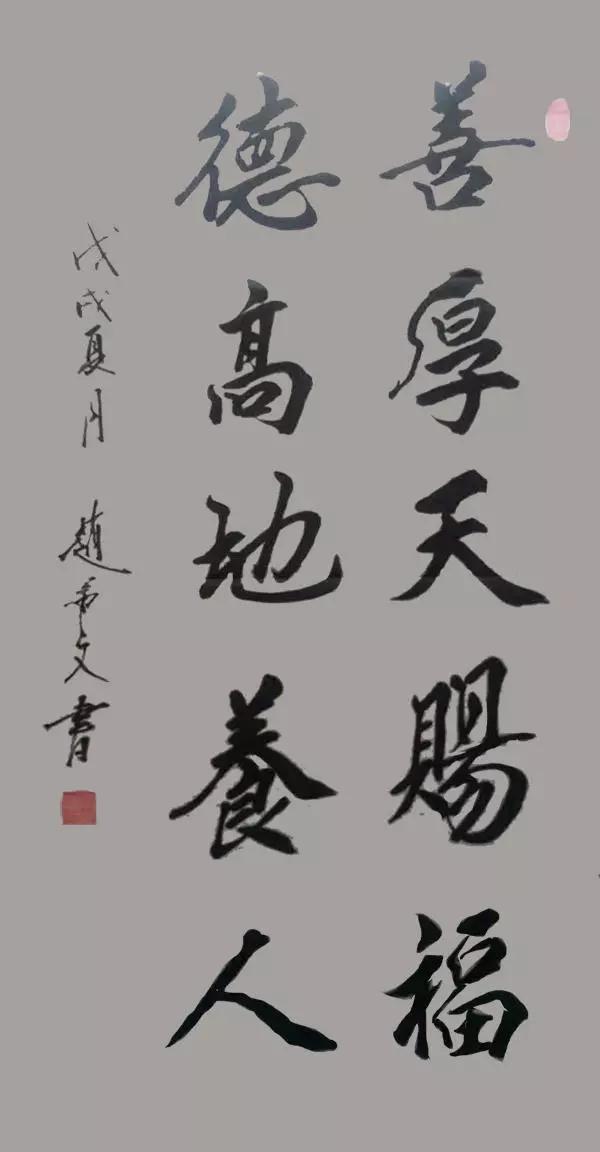 善厚天賜福
德高地養人
戊戌夏月 趙 文書